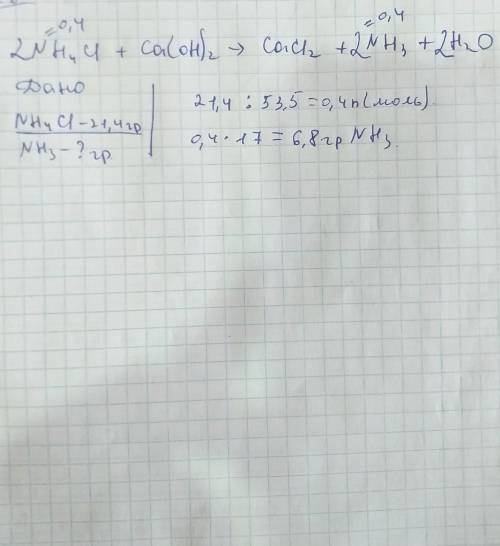 =0,4 =0,4
2NH₄Cl + Ca(OH)₂ → CaCl₂ + 2NH₃ + 2H₂O
Дано
NH₄Cl – 21,4 гр
NH₃ – ? гр
21,4 : 53,5 = 0,4 n (моль)
0,4 · 17 = 6,8 гр NH₃.